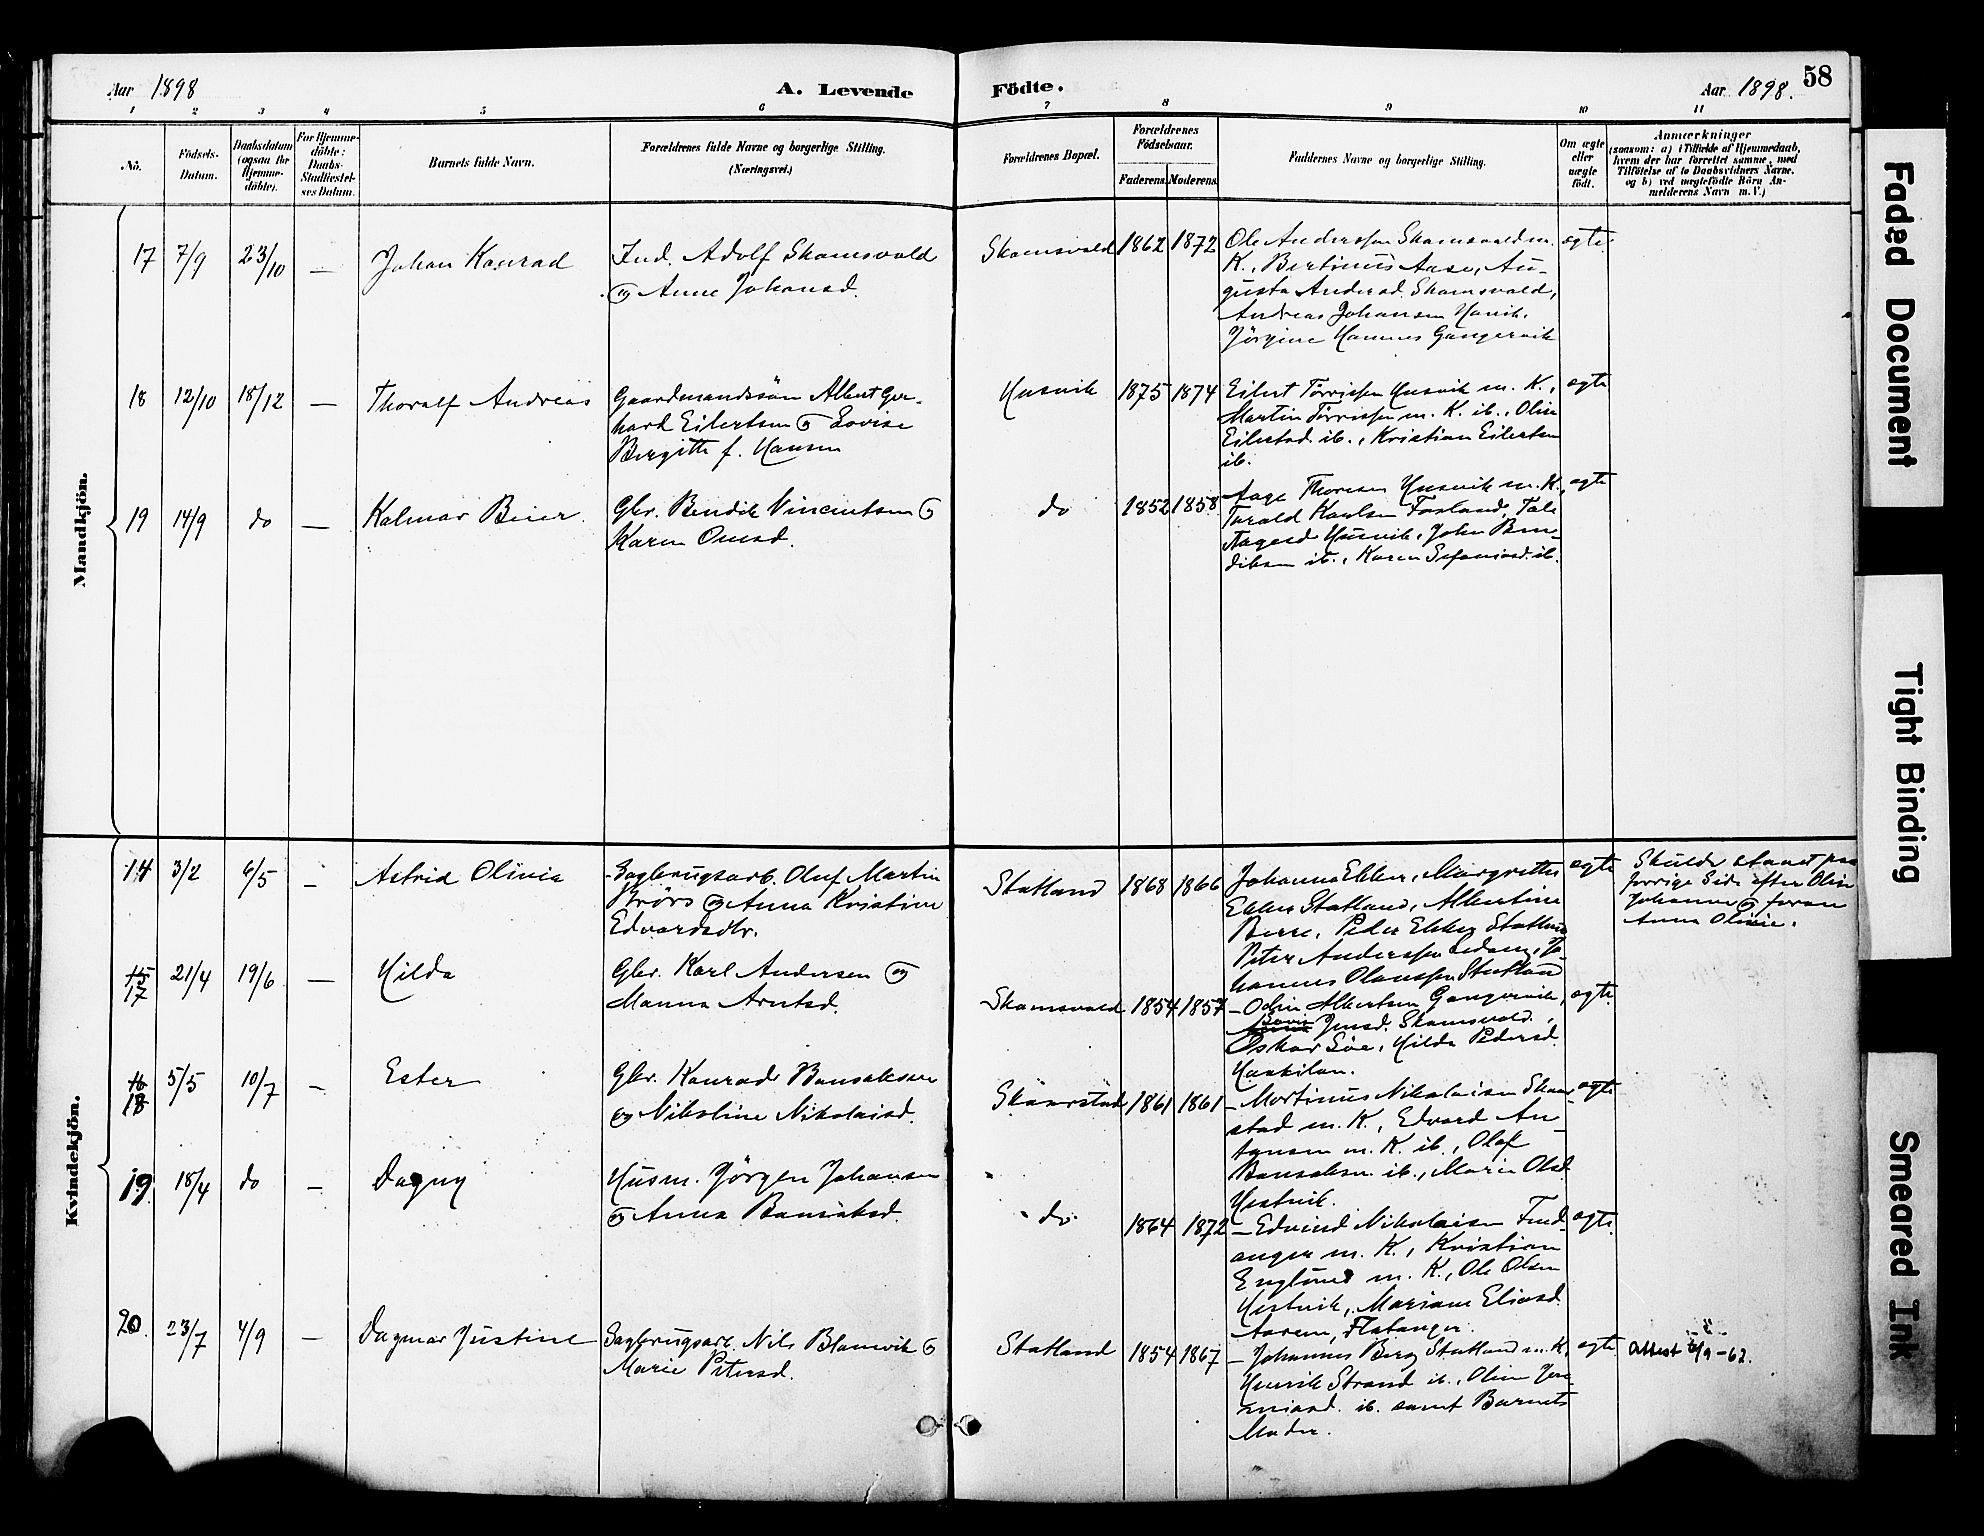 Aar 1898
A. Levende
Födte.
Aar 1898.
58
1 2 3 4 5 6 7 8 9 10 11
No.
Födsels-
Datum.
Daabsdatum
(ogsaa for
Hjemme-
döbte).
For Hjemme-
döbte:
Daabs-
Stadfæstel-
ses Datum.
Barnets fulde Navn.
Forældrenes fulde Navne og borgerlige Stilling.
(Næringsvei.)
Forældrenes Bopæl.
Forældrenes
Födselsaar.
Faderens. Moderens.
Faddernes Navne og borgerlige Stilling.
Om ægte
eller
uægte
födt.
Anmærkninger
(saasom: a) i Tilfælde af Hjemmedaab,
hvem der har forrettet samme, med
Tilföielse af to Daabsvidners Navne.
og b) ved uægtefödte Börn An-
melderens Navn m. V.)
Mandkjön.
17 7/9 23/10 — Johan Konrad
Ind. Adolf Skamsvold
og Anne Johansd.
Skamsvold 1862 1872
Ole Anderssen Skamsvold m.
K., Bertinus Aase, Au-
gusta Andersd. Skamsvold,
Andreas Johansen
Jörgine Hannes Gangervik
ægte
18 12/10 18/12 — Thoralf Andreas
Gaardmandssön Albert Ger-
hard Eilertsen og Lovise
Bergitte f. Hansen
Husvik 1875 1874
Eilert Törrissen Husvik m. K.,
Martin Törrissen m. K. ib., Oline
Eilertsd. ib., Kristian Eilertsen
ib.
ægte
19 14/9 do — Kalmar Beier.
Gbr. Bendik Vincentsen og
Karen Omsd.
do 1852 1858
Aage Thoresen Husvik m. K.,
Torald Karlsen Fosland, Tale
Aagesd Husvik, John Ben-
diksen ib., Karen Sefaniasd. ib.
ægte
Kvindekjön.
14 3/2 6/5 — Astrid Olivie
Sagbrugsarb. Oluf Martin
Brörs og Anna Kristine
Edvardsdtr.
Statland 1868 1866
Johanna Ekker, Margrethe
Ekker Statland, Albertine
Berre, Peder Ekker Statland
Peter Anderssen Jo-
hannes Olaussen Statland
ægte
Skulde staaet paa
forrige Side efter Oline
Johanne og foran
Anna Olivie.
15
17 21/4 19/6 — Hilda
Gbr. Karl Andersen og
Manna Arntsd.
Skamsvold 1854 1857
— Odin Albertsen Gangervik,
Jensd. Skamsvold,
Oskar Löe, Hilda Pedersd.
ægte.
16
18 5/5 10/7 — Ester
Gbr. Konrad Bansaksen
og Nikoline Nikolaisd.
1861 1861
— Martinus Nikolaisen
stad m. K., Edvard An-
tonsen m. K. ib., Olaf
Bansaksen ib., Maren Olsd.
Hestvik.
ægte
19. 18/4 do — Dagny
Husm. Jörgen Johansen
og Anna Bansaksd.
do. 1864 1872
— Edvind Nikolaisen Find-
anger m. K., Kristian
Englund m. K., Ole Olsen
Hestvik, Mariane Eliasd.
Aarem, Flatanger.
ægte.
20. 23/7 4/9 — Dagmar Justine
Sagbrugsarb. Nils Blamvik og
Marie Petersd.
Statland 1854 1867
— Johannes Berg Statland m. K.
Henrik Strand ib., Oline Jere-
miasd. ib. samt Barnets
Moder.
ægte
attest /9-62.
Faded Document
Tight Binding
Smeared Ink